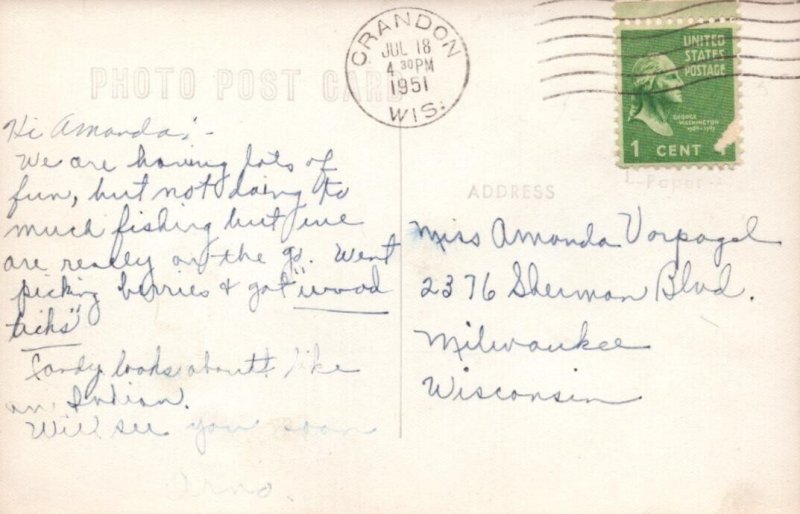 PHOTO POST CARD
CRANDON
JUL 18
4 30 PM
1951
WIS.
UNITED
STATES
POSTAGE
GEORGE
WASHINGTON
1 CENT
Hi Amanda:-
We are having lots of
fun, but not doing to
much fishing but we
are really on the go. Went
picking berries & got "wood
ticks"
Sandy looks about like
an Indian.
Will see you soon
Arno.
ADDRESS
Miss Amanda Vorpagel
2376 Sherman Blvd.
Milwaukee
Wisconsin